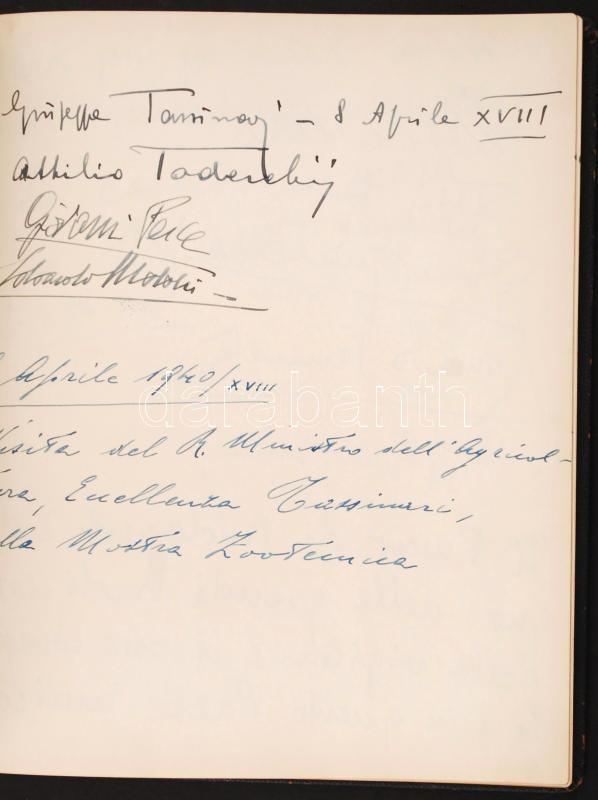 Giuseppe Tassinari – 8 Aprile XVIII
Attilio Tedeschi
Giovanni
Aprile 1940/XVIII
isita del R. Ministro dell'Agricol-
ra, Eccellenza Tassinari,
lla Mostra Zootecnica
darabanth